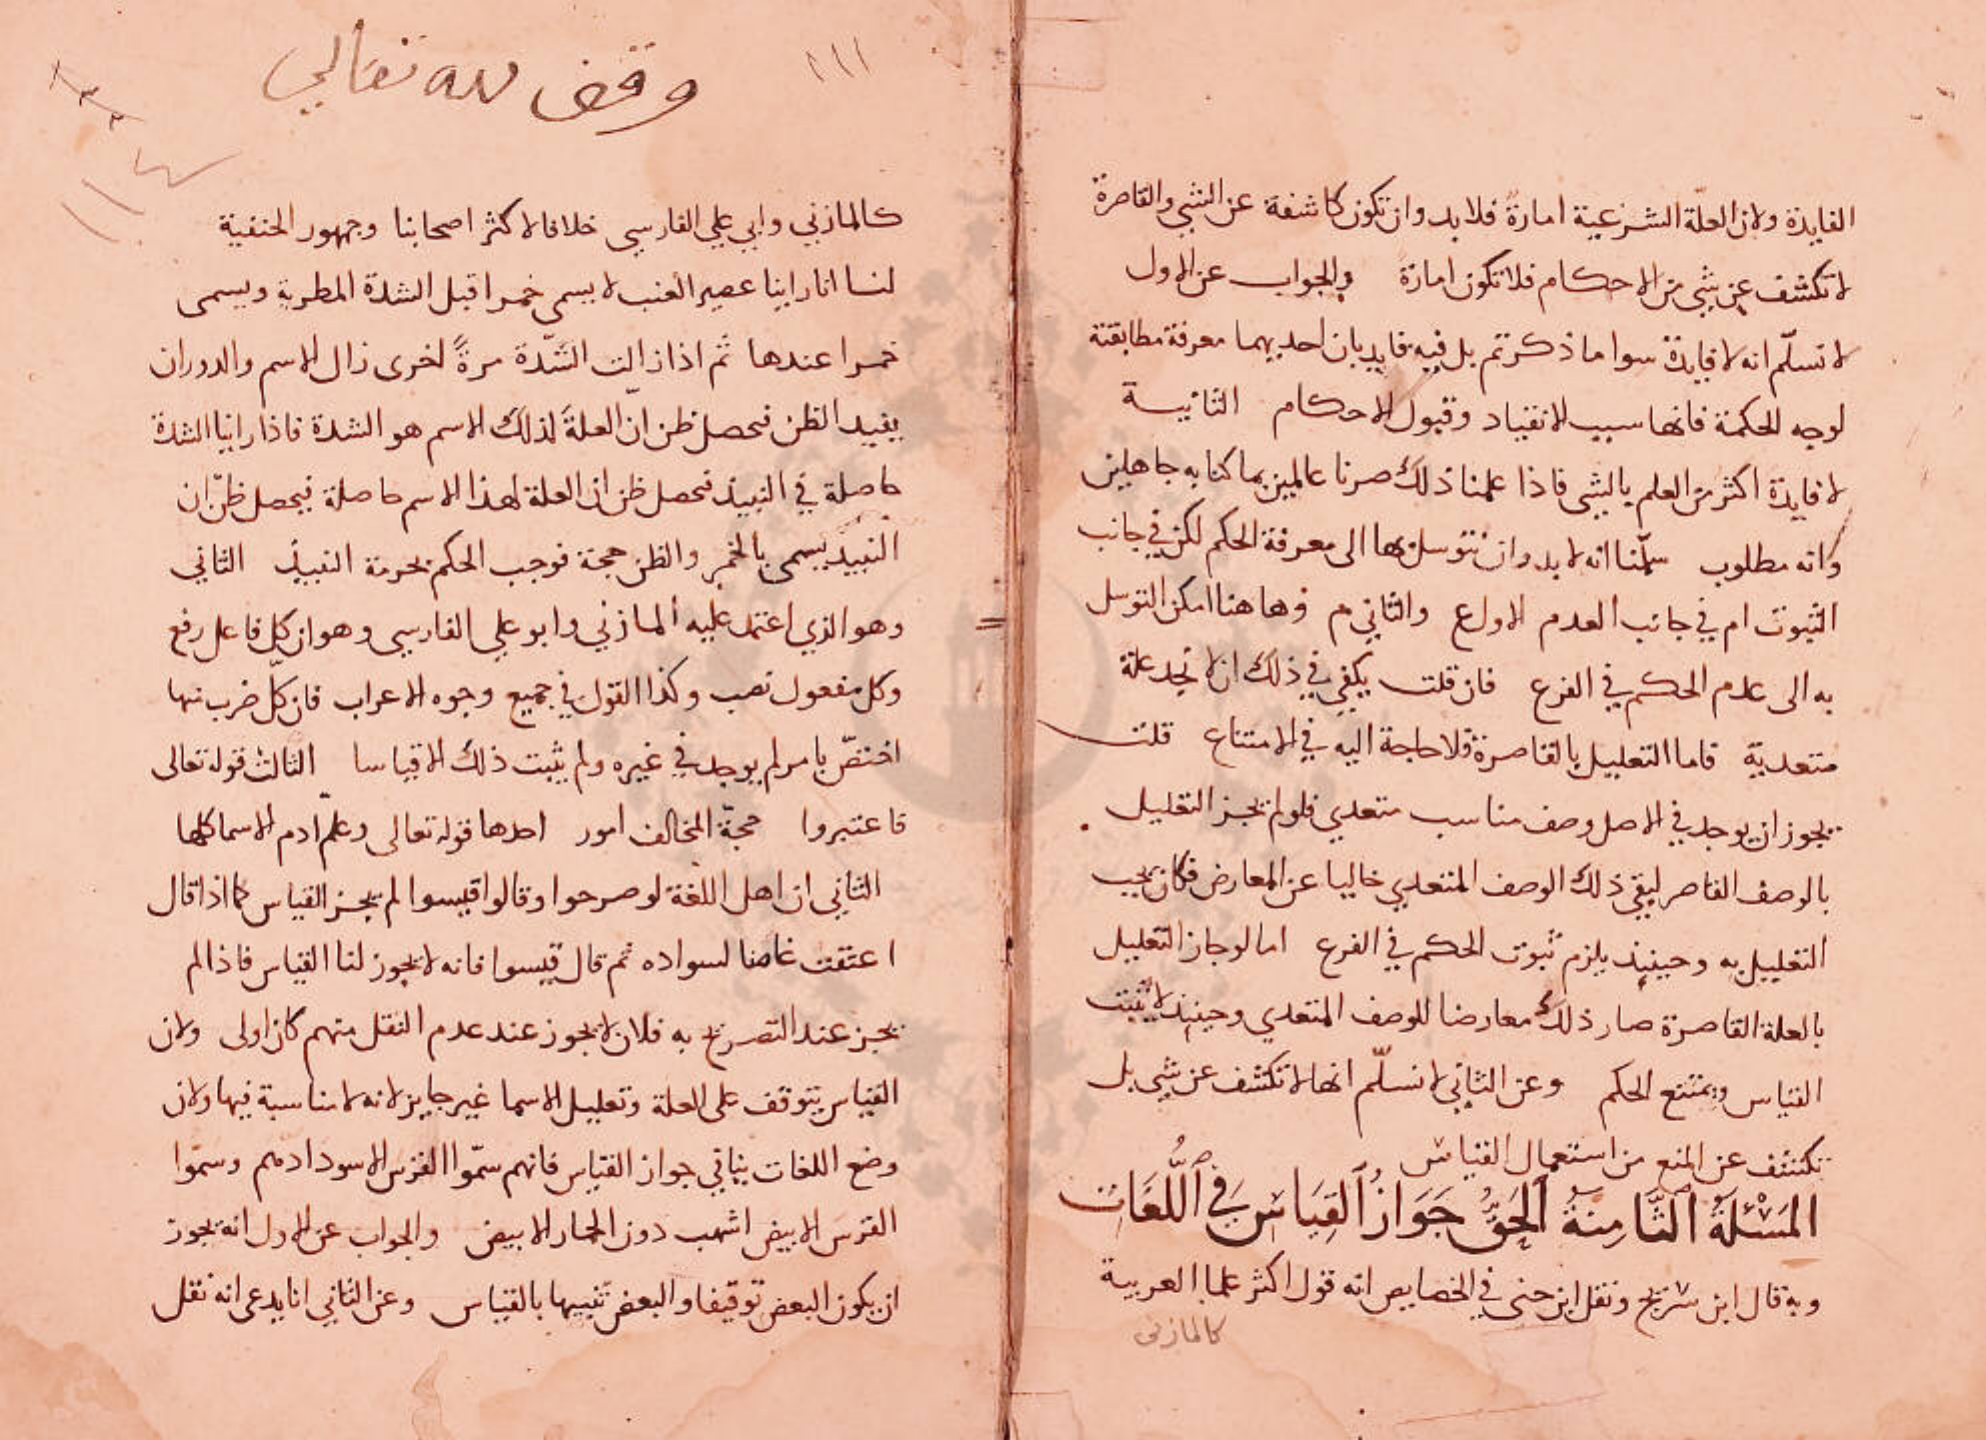 الفايدة ولان العلّة الشرعية امارة فلا بد وان تكون كاشفة عن الشي والقاصرة
لا تكشف عن شي من الاحكام فلا تكون امارة والجواب عن الاول
لا نسلّم انه لا فايدة سوا ما ذكرتم بل فيه فايدتان احديهما معرفة مطابقتة
لوجه الحكمة فانها سبب لانقياد وقبول الاحكام الثانية
لا فايدة اكثر من العلم بالشي فاذا علمنا ذلك صرنا عالمين بما كنا به جاهلين
وانه مطلوب سلّمنا انه لا بد وان نتوسل بها الى معرفة الحكم لكن في جانب
الثبوت ام في جانب العدم الاول ع والثاني م وهاهنا امكن التوسل
به الى عدم الحكم في الفرع فان قلت يكفي في ذلك ان لا نجد علة
متعدية فاما التعليل بالقاصرة فلا حاجة اليه في الامتناع قلت
يجوز ان يوجد في الاصل وصف مناسب متعدي فلو لم يجز التعليل
بالوصف القاصر لبقي ذلك الوصف المتعدي خاليا عن المعارض فكان يجب
التعليل به وحينيذ يلزم ثبوت الحكم في الفرع اما لو جاز التعليل
بالعلة القاصرة صار ذلك معارضا للوصف المتعدي وحينيذ لا يثبت
القياس ويمتنع الحكم وعن الثاني لا نسلّم انها لا تكشف عن شي بل
تكشف عن المنع من استعمال القياس
المَسْئلَةُ الثَّامِنَةُ الحَقُّ جَوَازُ القِيَاسِ فِي اللُّغَاتِ
وبه قال ابن سريج ونقل ابن جنى في الخصايص انه قول اكثر علما العربية
كالمازنى
١١١
وقف لله تعالى
كالمازني وابي علي الفارسي خلافا لاكثر اصحابنا وجمهور الحنفية
لنا انا راينا عصير العنب لا يسمى خمرا قبل الشدة المطربة ويسمى
خمرا عندها ثم اذا زالت الشّدّة مرةً اخرى زال الاسم والدوران
يفيد الظن فحصل ظن انّ العلة لذلك الاسم هو الشدة فاذا راينا الشدة
حاصلة في النبيذ فحصل ظن ان العلة لهذا الاسم حاصلة فيحصل ظنّ ان
النبيذ يسمى بالخمر والظن حجة فوجب الحكم بحرمة النبيذ الثاني
وهو الذي اعتمد عليه المازني وابو علي الفارسي وهو ان كل فاعل رفع
وكل مفعول نصب وكذا القول في جميع وجوه الاعراب فان كلّ ضرب منها
اختصّ بامر لم يوجد في غيره ولم يثبت ذلك الا قياسا الثالث قوله تعالى
فاعتبروا حجّة المخالف امور احدها قوله تعالى وعلّم آدم الاسما كلها
الثاني ان اهل اللغة لو صرحوا وقالوا قيسوا لم يجز القياس كما اذا قال
اعتقت غانما لسواده ثم قال قيسوا فانه لا يجوز لنا القياس فاذا لم
يجز عند التصريح به فلان لا يجوز عند عدم النقل منهم كان اولى ولان
القياس يتوقف على العلة وتعليل الاسما غير جايز لانه لا مناسبة فيها ولان
وضع اللغات ينافي جواز القياس فانهم سمّوا الفرس الاسود ادهم وسمّوا
الفرس الابيض اشهب دون الحمار الابيض والجواب عن الاول انه يجوز
ان يكون البعض توقيفا والبعض تنبيها بالقياس وعن الثاني انا يدعى انه نقل